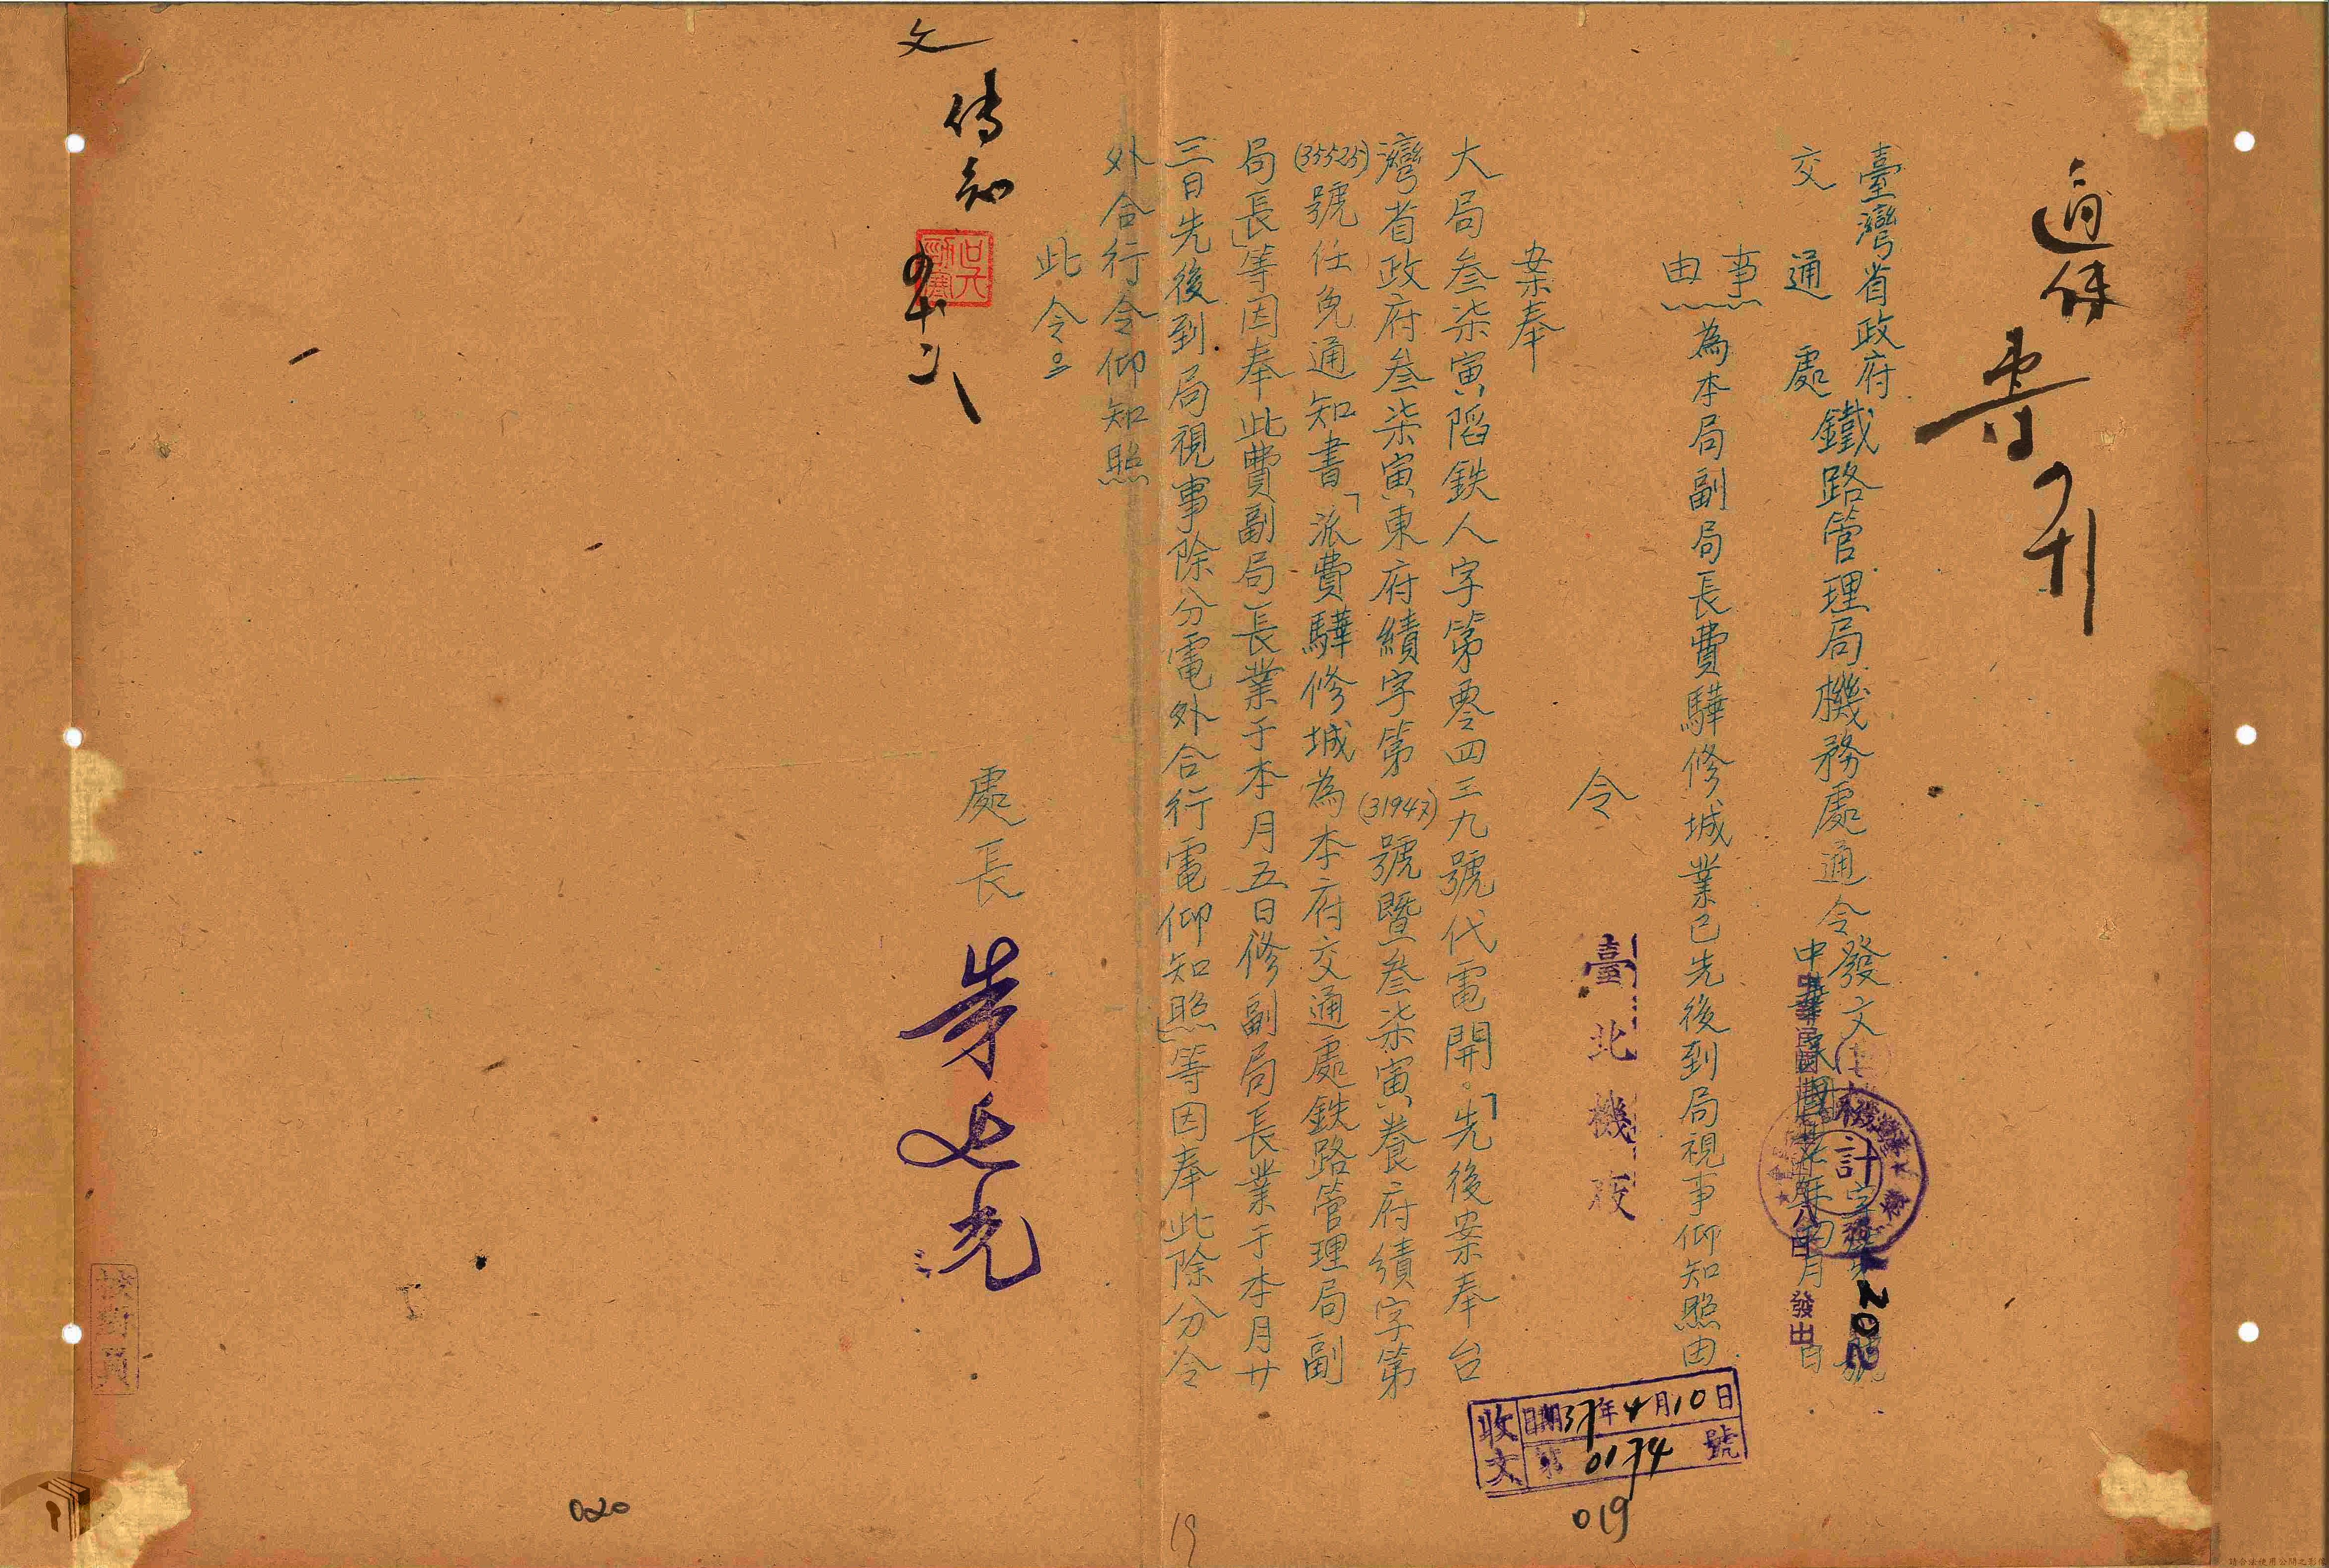 臺灣省政府
交通處
鐵路管理局機務處通令
發文
機
計
字第
202
號
中華民國
年
月
日
發出
事由
為本局副局長費驊修城業已先後到局視事仰知照由
令
臺北機
案奉
大局叁柒寅陷鉄人字第零四三九號代電開。「先後案奉台
灣省政府叁柒寅東府績字第(31947)號暨叁柒寅養府績字第
(35525)號任免通知書「派費驊修城為本府交通處鉄路管理局副
局長」等因奉此費副局長業于本月五日修副局長業于本月廿
三日先後到局視事除分電外合行電仰知照」等因奉此除分令
外合行令仰知照
此令
處長
收文
日期37年4月10日
第0174號
019
文
傳知
校對員
020
19